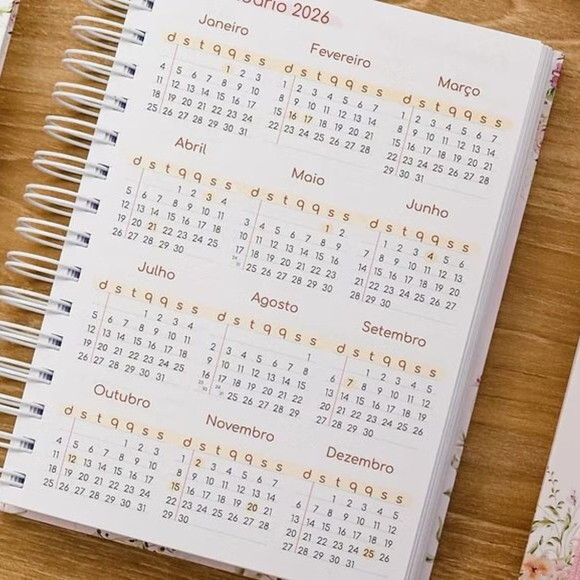 uário 2026
Janeiro
d s t q q s s
1 2 3
4 5 6 7 8 9 10
11 12 13 14 15 16 17
18 19 20 21 22 23 24
25 26 27 28 29 30 31
Fevereiro
d s t q q s s
1 2 3 4 5 6 7
8 9 10 11 12 13 14
15 16 17 18 19 20 21
22 23 24 25 26 27 28
Março
d s t q q s s
1 2 3 4 5 6 7
8 9 10 11 12 13 14
15 16 17 18 19 20 21
22 23 24 25 26 27 28
29 30 31
Abril
d s t q q s s
1 2 3 4
5 6 7 8 9 10 11
12 13 14 15 16 17 18
19 20 21 22 23 24 25
26 27 28 29 30
Maio
d s t q q s s
1 2
3 4 5 6 7 8 9
10 11 12 13 14 15 16
17 18 19 20 21 22 23
25 26 27 28 29 30
Junho
d s t q q s s
1 2 3 4 5 6
7 8 9 10 11 12 13
14 15 16 17 18 19 20
21 22 23 24 25 26 27
28 29 30
Julho
d s t q q s s
1 2 3 4
5 6 7 8 9 10 11
12 13 14 15 16 17 18
19 20 21 22 23 24 25
26 27 28 29 30 31
Agosto
d s t q q s s
1
2 3 4 5 6 7 8
9 10 11 12 13 14 15
16 17 18 19 20 21 22
25 26 27 28 29
Setembro
d s t q q s s
1 2 3 4 5
6 7 8 9 10 11 12
13 14 15 16 17 18 19
20 21 22 23 24 25 26
27 28 29 30
Outubro
d s t q q s s
1 2 3
4 5 6 7 8 9 10
11 12 13 14 15 16 17
18 19 20 21 22 23 24
25 26 27 28 29 30 31
Novembro
d s t q q s s
1 2 3 4 5 6 7
8 9 10 11 12 13 14
15 16 17 18 19 20 21
22 23 24 25 26 27 28
29 30
Dezembro
d s t q q s s
1 2 3 4 5
6 7 8 9 10 11 12
13 14 15 16 17 18 19
20 21 22 23 24 25 26
27 28 29 30 31